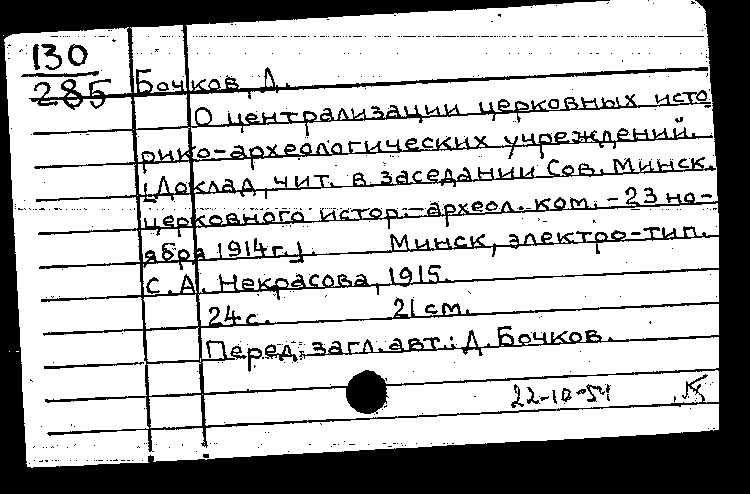 130
285
Бочков, Д.
О централизации церковных исто
рико-археологических учреждений.
[Доклад, чит. в заседании Сов. Минск.
церковного истор.-археол. ком. - 23 но-
ября 1914 г.]. Минск, электро-тип.
С. А. Некрасова, 1915.
24 с. 21 см.
Перед загл. авт.: Д. Бочков.
22-10-54